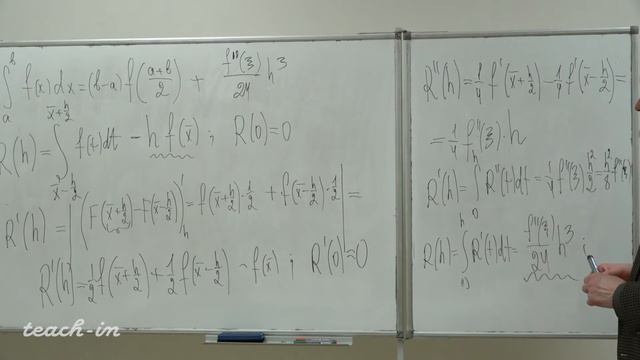 ∫_a^b f(x)dx = (b-a) f((a+b)/2) + f''(ξ)/24 h³
R(h) = ∫_{x̄-h/2}^{x̄+h/2} f(t)dt - h f(x̄) ; R(0)=0
R'(h) = | (F(x̄+h/2) - F(x̄-h/2))'_h = f(x̄+h/2)·1/2 + f(x̄-h/2)·1/2 | =
R'(h) = 1/2 f(x̄+h/2) + 1/2 f(x̄-h/2) - f(x̄) ; R'(0)=0
R''(h) = 1/4 f'(x̄+h/2) - 1/4 f'(x̄-h/2) =
= 1/4 f''(ξ)·h
R'(h) = ∫_0^h R''(t)dt = 1/4 f''(ξ) h²/2 = h²/8 f''(ξ)
R(h) = ∫_0^h R'(t)dt = f''(ξ)/24 h³ ;
teach-in